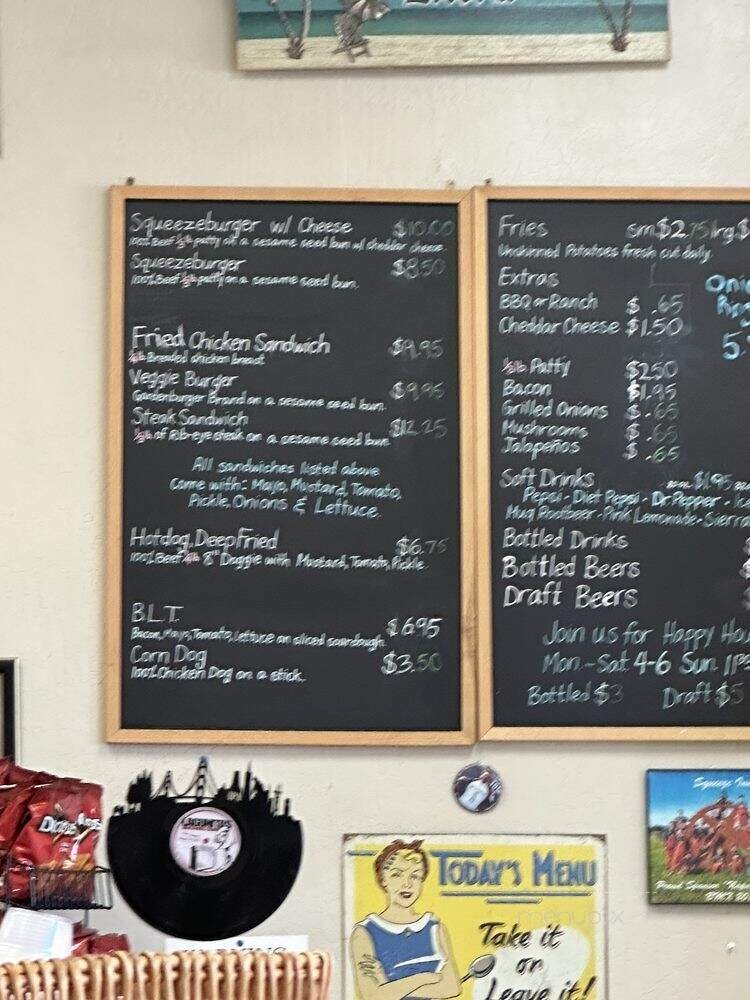 Squeezeburger w/ Cheese $10.00
100% Beef 1/3 lb patty on a sesame seed bun w/ cheddar cheese.
Squeezeburger $8.50
100% Beef 1/3 lb patty on a sesame seed bun.
Fried Chicken Sandwich $9.95
Breaded chicken breast
Veggie Burger $9.95
Gardenburger Brand on a sesame seed bun.
Steak Sandwich $12.25
of Rib-eye steak on a sesame seed bun
All sandwiches listed above
come with: Mayo, Mustard, Tomato,
Pickle, Onions & Lettuce.
Hotdog, Deep Fried $6.75
100% Beef 8" Doggie with Mustard, Tomato, Pickle.
B.L.T. $6.95
Bacon, Mayo, Tomato, lettuce on sliced sourdough.
Corn Dog $3.50
100% Chicken Dog on a stick.
Fries sm.$2.75 lrg.$
Unskinned Potatoes fresh cut daily.
Extras
BBQ or Ranch $ .65
Cheddar Cheese $1.50
Patty $2.50
Bacon $1.95
Grilled Onions $ .65
Mushrooms $ .65
Jalapeños $ .65
Onio
Rin
5.
Soft Drinks $1.95
Pepsi - Diet Pepsi - Dr. Pepper - Ic
Mug Rootbeer - Pink Lemonade - Sierra
Bottled Drinks
Bottled Beers
Draft Beers
Join us for Happy Ho
Mon - Sat 4-6 Sun 11
Bottled $3 Draft $5
Doritos
TODAY'S MENU
Take it
or
Leave it!
menupix